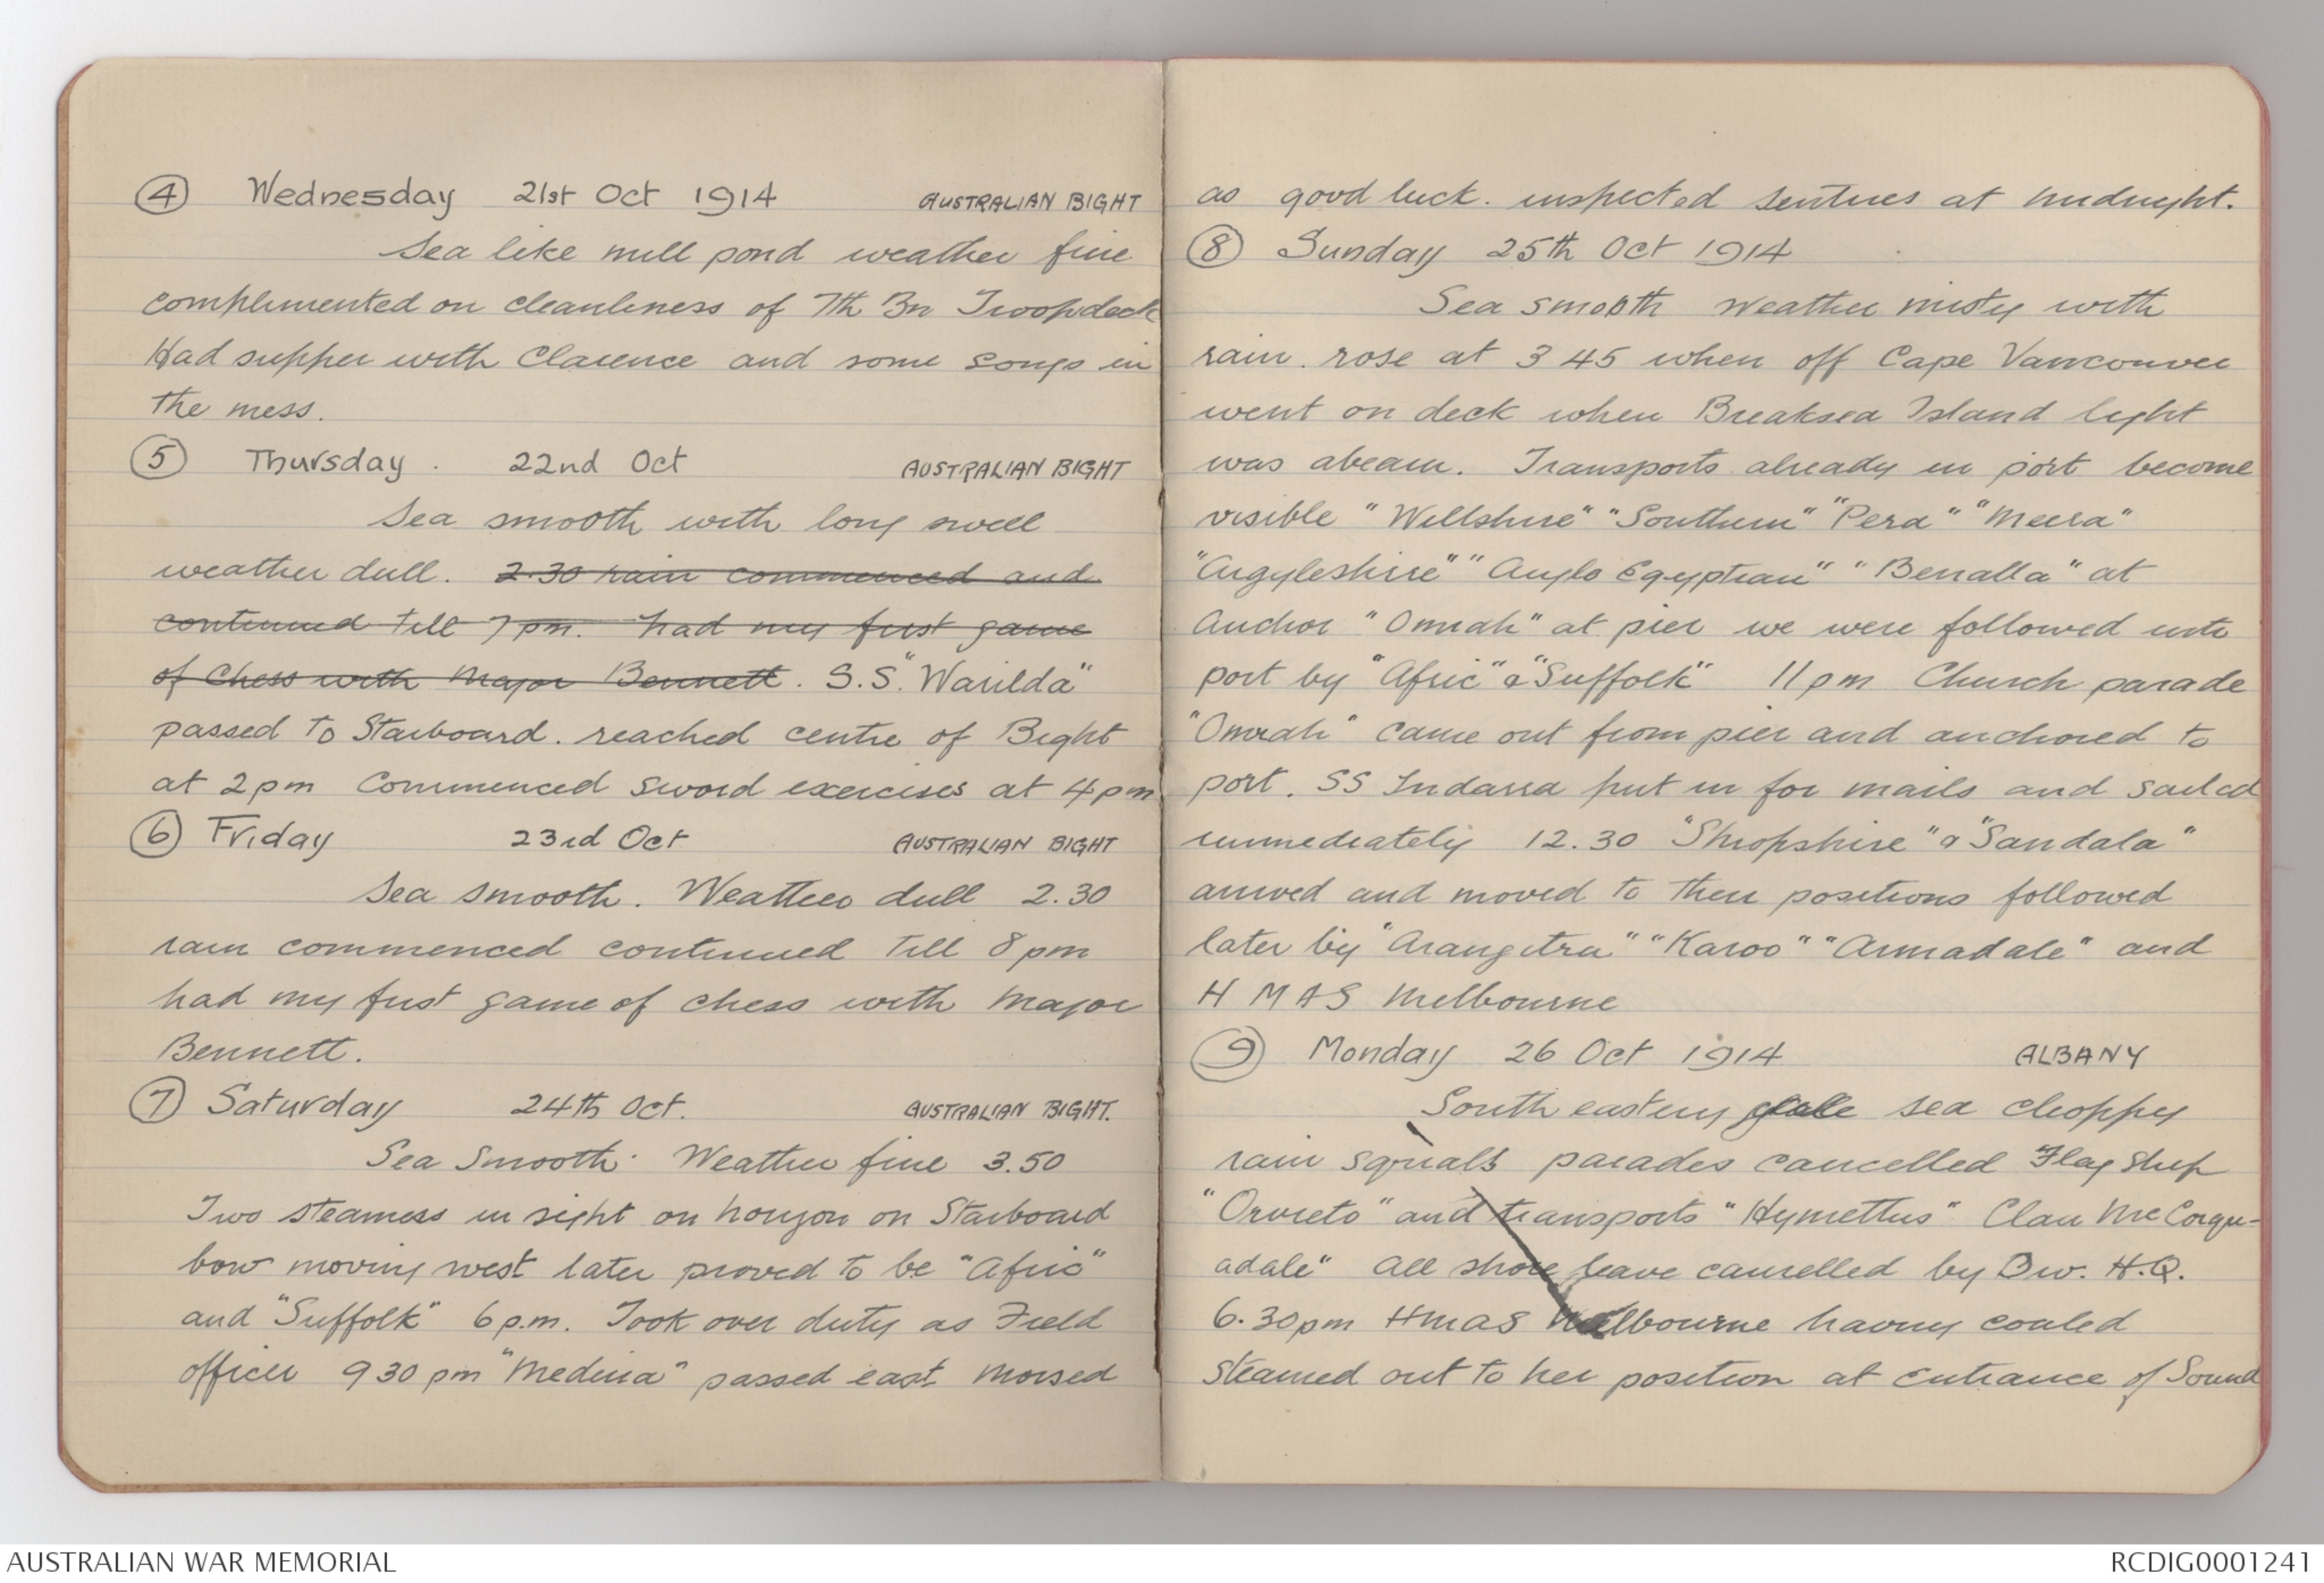 ④ Wednesday 21st Oct 1914 AUSTRALIAN BIGHT
Sea like mill pond weather fine
complimented on cleanliness of 7th Bn Troopdeck
Had supper with Clarence and some songs in
the mess.
⑤ Thursday . 22nd Oct AUSTRALIAN BIGHT
Sea smooth with long swell
weather dull. 2.30 rain commenced and
continued till 7 pm. had my first game
of Chess with Major Bennett. S.S. "Warilda"
passed to Starboard. reached centre of Bight
at 2 pm Commenced sword exercises at 4 pm
⑥ Friday 23rd Oct AUSTRALIAN BIGHT
Sea smooth. Weather dull 2.30
rain commenced continued till 8 pm
had my first game of chess with Major
Bennett.
⑦ Saturday 24th Oct. AUSTRALIAN BIGHT.
Sea Smooth. Weather fine 3.50
Two steamers in sight on horizon on Starboard
bow moving west later proved to be "Afric"
and "Suffolk" 6 p.m. Took over duty as Field
officer 9 30 pm "Medina" passed east Morsed
as good luck. inspected sentries at midnight.
⑧ Sunday 25th Oct 1914
Sea smooth Weather misty with
rain. rose at 3 45 when off Cape Vancouver
went on deck when Breaksea Island light
was abeam. Transports already in port become
visible "Willshire" "Southern" "Pera" "Meera"
"Argyleshire" "Anglo Egyptian" "Benalla" at
Anchor "Omrah" at pier we were followed into
port by "Afric" & "Suffolk" 11 pm Church parade
"Omrah" came out from pier and anchored to
port. SS Indarra put in for mails and sailed
immediately 12.30 "Shropshire" & "Sandala"
arrived and moved to their positions followed
later by "Arangitru" "Karoo" "Armadale" and
H M A S Melbourne
⑨ Monday 26 Oct 1914 ALBANY
South eastery gale sea choppy
rain squalls parades cancelled Flag Ship
"Orvieto" and transports "Hymettus" Clan McCorqu-
adale" All shore leave cancelled by Div. H.Q.
6.30pm HMAS Melbourne having coaled
steamed out to her position at entrance of Sound
AUSTRALIAN WAR MEMORIAL
RCDIG0001241